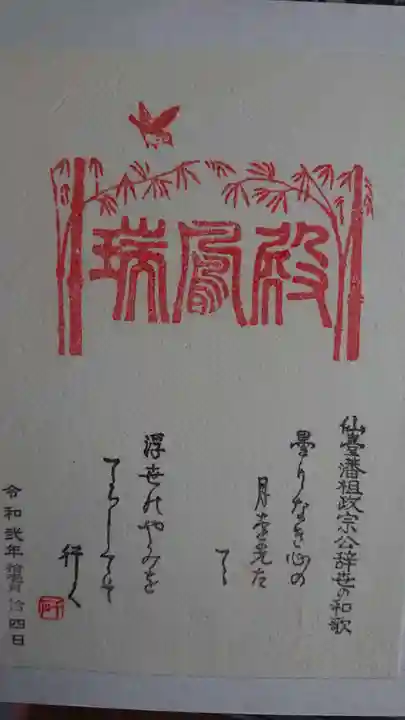 瑞鳳殿
仙臺藩祖政宗公辞世の和歌
曇りなき心の
月を先だ
てゝ
浮世のやみを
てらしてぞ
行く
令和弐年 拾四日